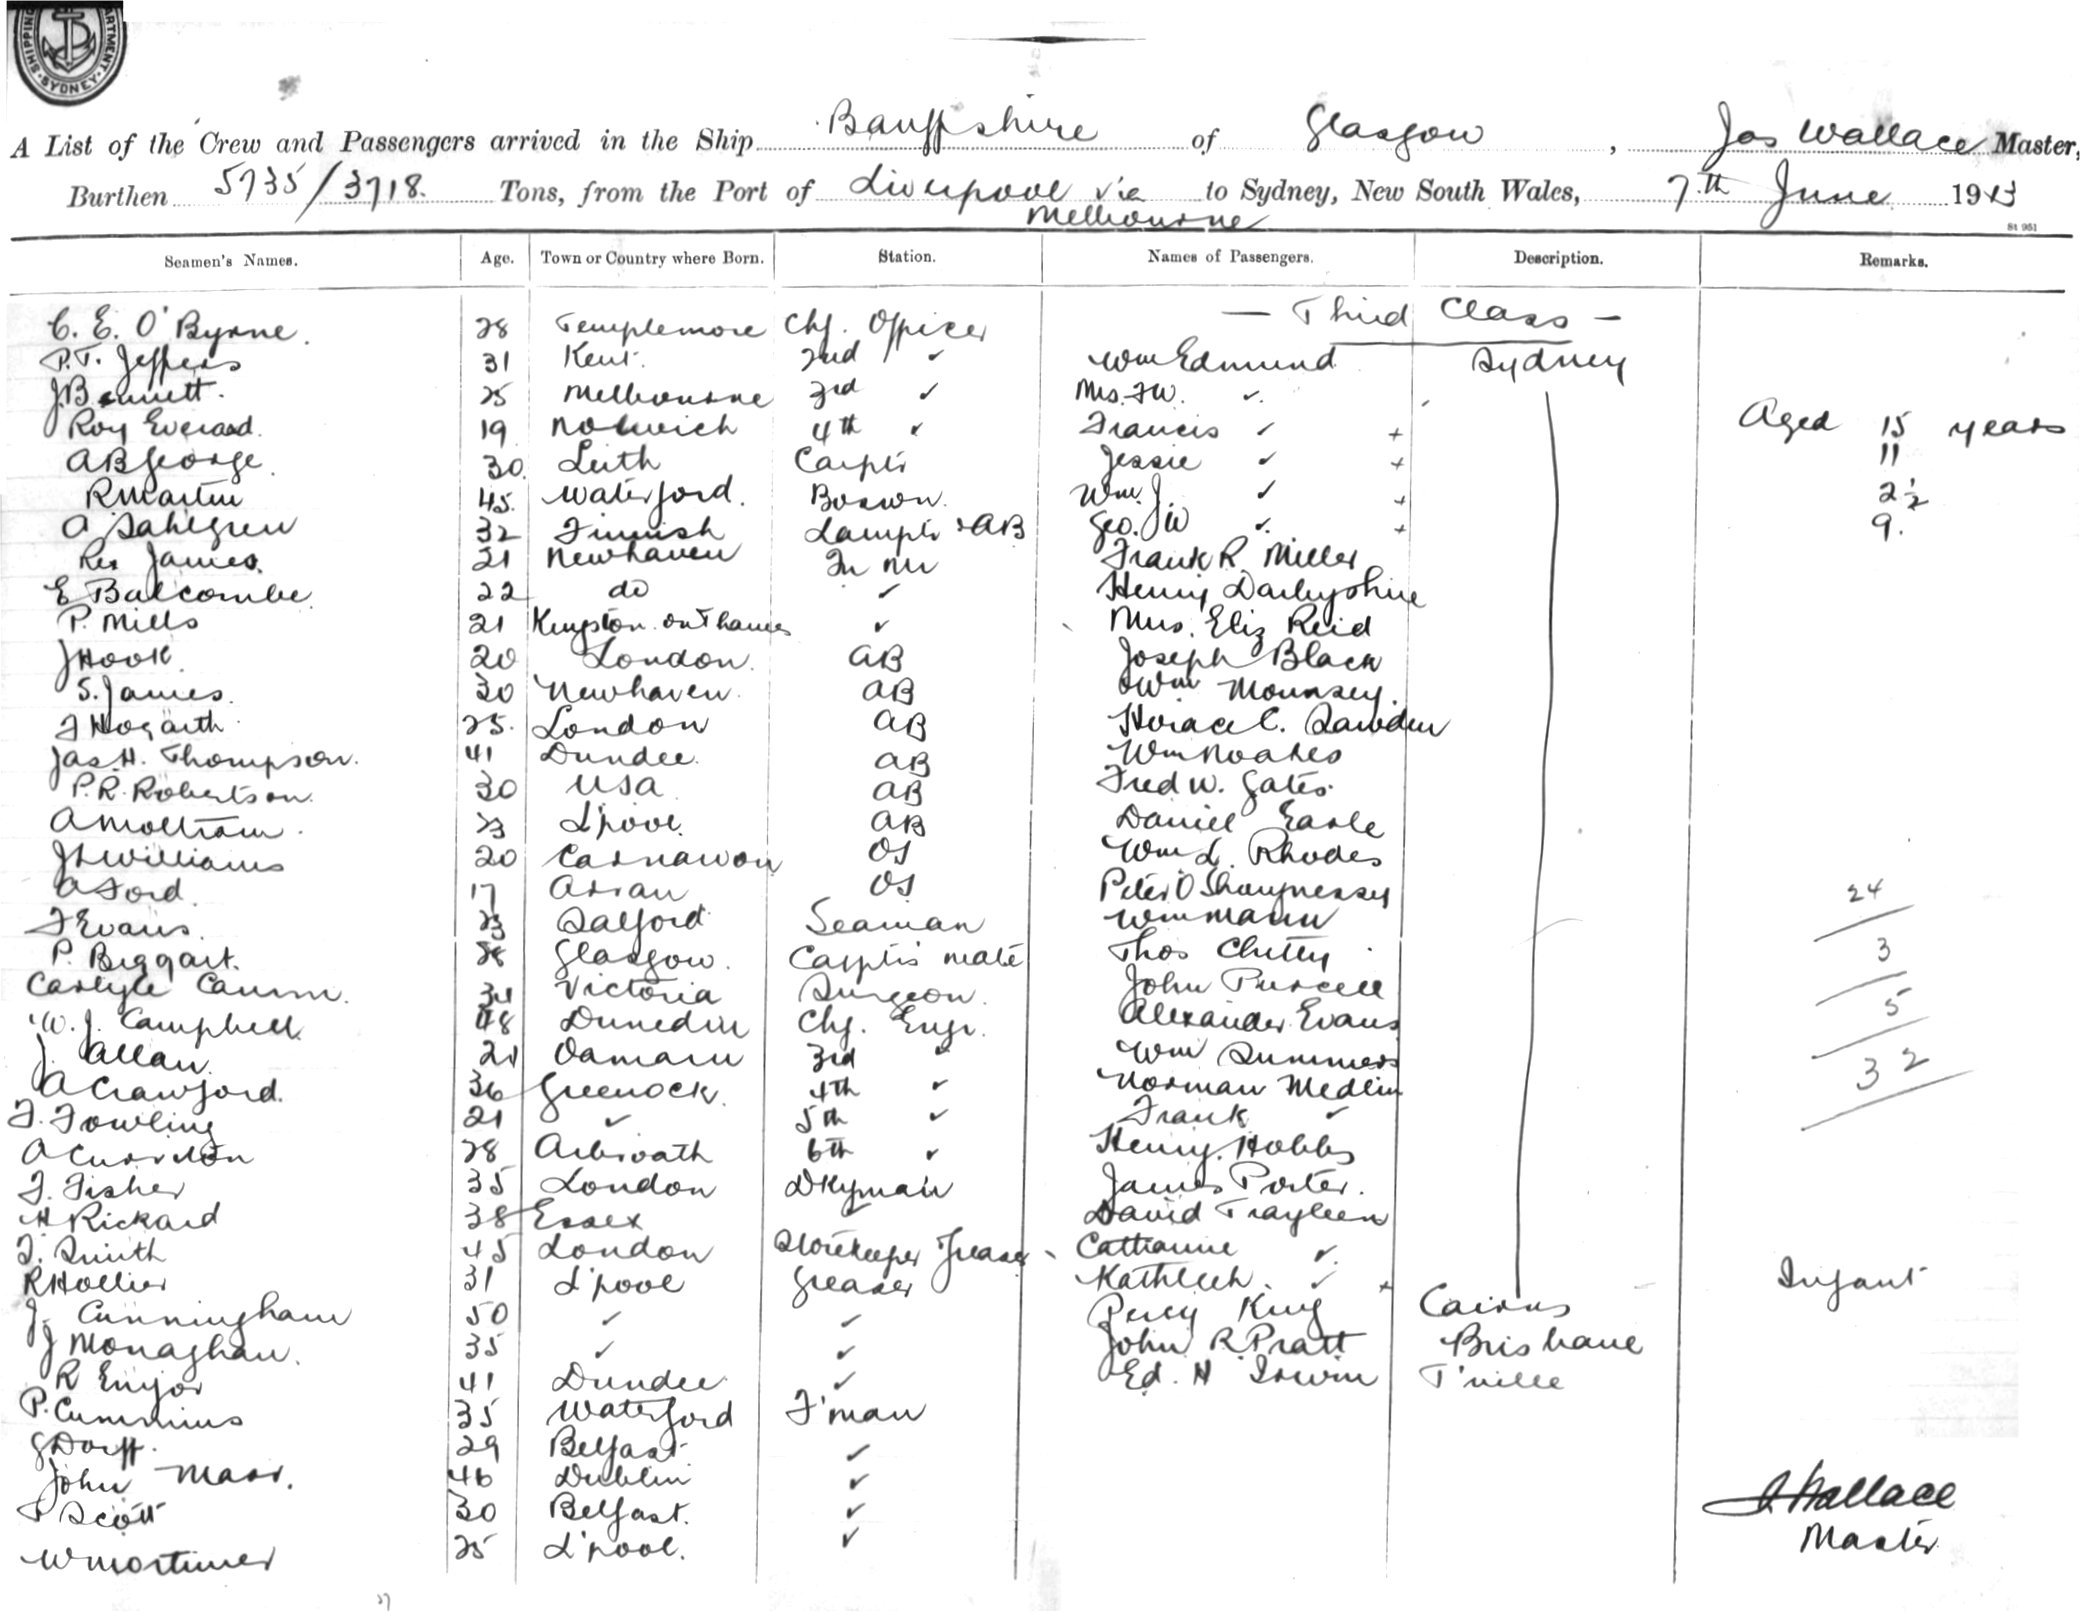 SHIPPING DEPARTMENT SYDNEY
A List of the Crew and Passengers arrived in the Ship Banffshire of Glasgow, Jas Wallace Master,
Burthen 5735/3718. Tons, from the Port of Liverpool via Melbourne to Sydney, New South Wales, 7th June 1913
St 951
Seamen's Names. Age. Town or Country where Born. Station. Names of Passengers. Description. Remarks.
C. E. O'Byrne. 28 Templemore Chf. Officer — Third Class —
P.T. Jeffers 31 Kent. 2nd ✓ Wm Edmund Sydney
J Bennett. 25 Melbourne 3rd ✓ Mrs. F W. ✓
Roy Everard. 19 Norwich 4th ✓ Francis ✓ + Aged 15 years
A B George. 30. Leith Carptr Jessie ✓ + 11
R Martin 45. Waterford. Boswn. Wm. J. ✓ + 2 1/2
A Dahlgren 32 Finnish Lamptr & AB Geo. W ✓ + 9.
Rex James. 21 Newhaven Frank R. Miller
E Balcombe. 22 do ✓ Henry Darbyshire
P. Mills 21 Kingston on Thames ✓ Mrs. Eliz Reid
J Hook. 20 London. AB Joseph Black
S. James. 30 Newhaven. AB Wm Mounsey.
F Hogarth 25. London AB Horace C. Sawden
Jas. H. Thompson. 41 Dundee. AB Wm Noakes
P. R. Robertson. 30 USA AB Fred W. Gates.
A Mottram. 23 L'pool. AB Daniel Earle
J L Williams 20 Carnavon OS Wm L. Rhodes
A Ford. 17 Arran OS Peter O'Shaugnessey 24
F Evans. 23 Salford Seaman Wm Mann
P. Biggart. 28 Glasgow. Carptr's mate Thos Chitty 3
Carlyle 34 Victoria Surgeon. John Purcell
W. J. Campbell 48 Dunedin Chf. Engr. Alexander Evans 5
J. Allan. 21 Oamaru 3rd ✓ Wm Summers
A Crawford. 36 Greenock. 4th ✓ Norman Medlin 32
F. Fowling 21 ✓ 5th ✓ Frank ✓
A 28 Arbroath 6th ✓ Henry. Hobbs
F. Fisher 35 London Dkyman James Porter.
H Rickard 38 Essex David Trayleen
T. Smith 45 London Storekeeper Greaser Catharine ✓
R Hollier 31 L'pool Greaser Kathleen. ✓ + Infant
J. Cunningham 50 ✓ ✓ Percy King Cairns
J Monaghan. 35 ✓ ✓ John R. Pratt Brisbane
R 41 Dundee ✓ Ed. H Irwin T'ville
P. Cummins 35 Waterford F'man
G Dorff. 29 Belfast ✓
John Marr. 46 Dublin ✓
T Scott 30 Belfast. ✓
W Mortimer 25 L'pool. ✓
J. Wallace
Master